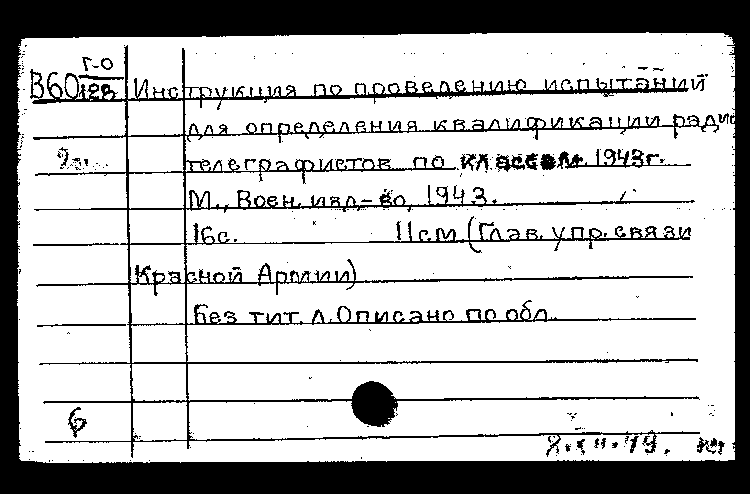 Г-О
В60 Инструкция по проведению испытаний
для определения квалификации радио
телеграфистов по классам. 1943г.
М., Воен. изд-во, 1943.
16с. 11см. (Глав. упр. связи
Красной Армии)
Без тит. л. Описано по обл.
6
8.XII.49.